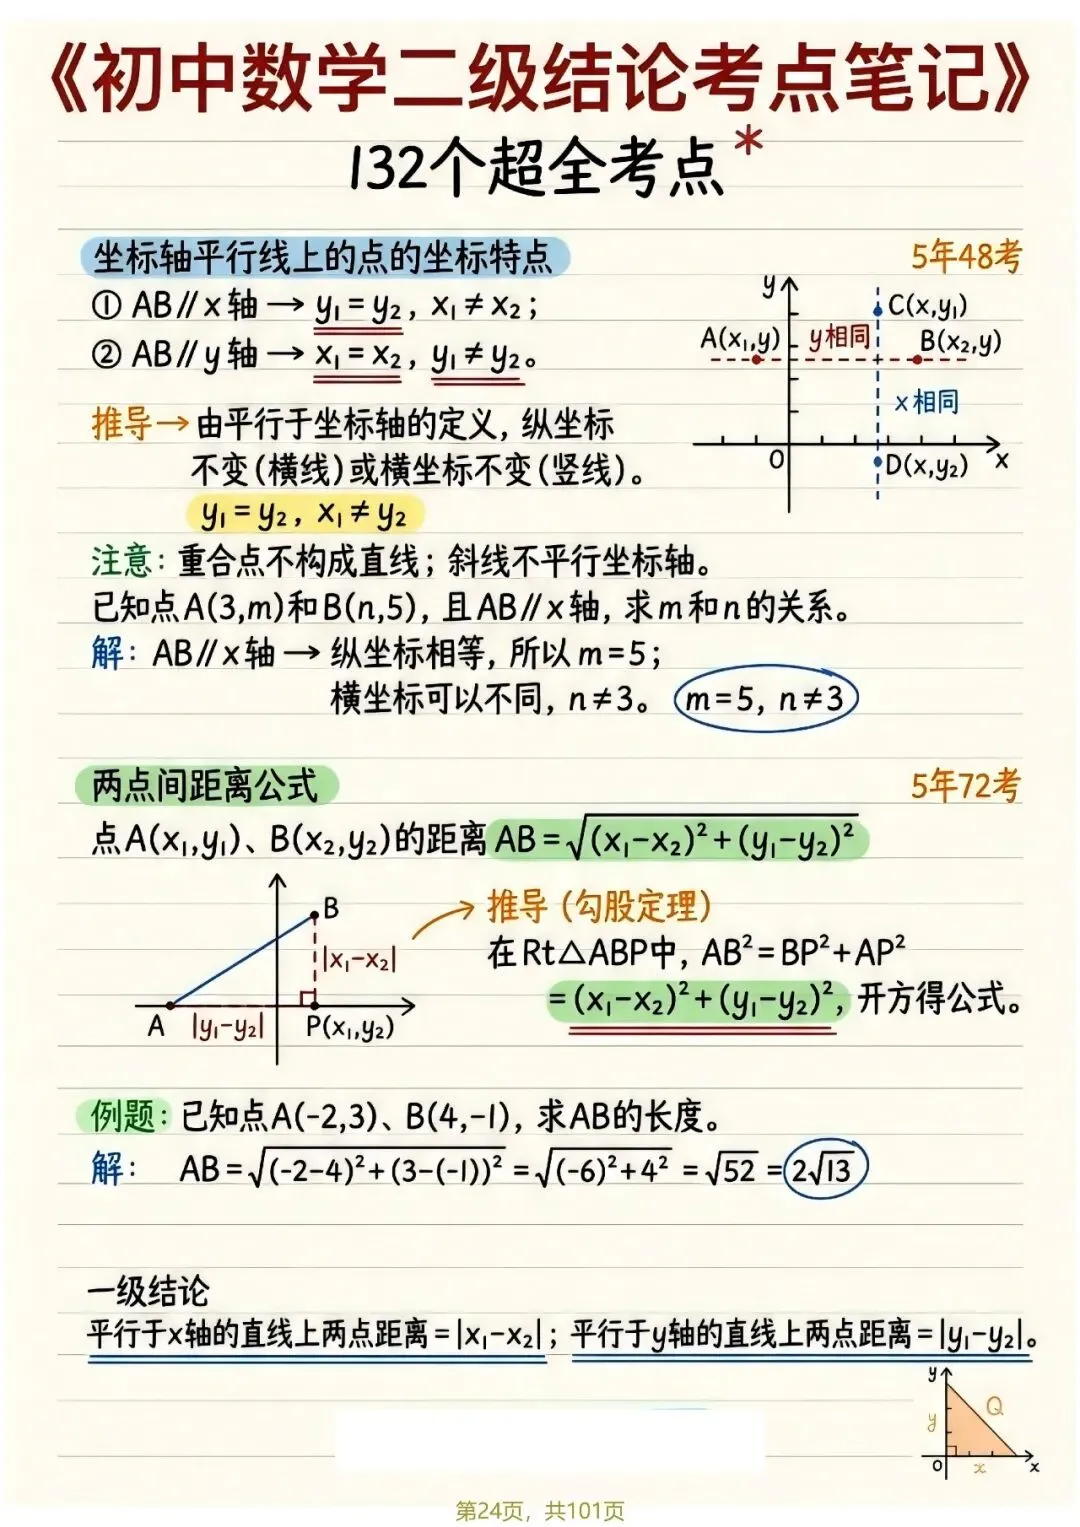 《初中数学二级结论考点笔记》
132个超全考点*
坐标轴平行线上的点的坐标特点
5年48考
① AB∥x轴→y₁=y₂, x₁≠x₂;
② AB∥y轴→x₁=x₂, y₁≠y₂。
y
C(x,y₁)
A(x₁,y) y相同 B(x₂,y)
x相同
O D(x,y₂) x
推导→由平行于坐标轴的定义, 纵坐标
不变(横线)或横坐标不变(竖线)。
y₁=y₂, x₁≠y₂
注意: 重合点不构成直线; 斜线不平行坐标轴。
已知点A(3,m)和B(n,5), 且AB∥x轴, 求m和n的关系。
解: AB∥x轴→纵坐标相等, 所以m=5;
横坐标可以不同, n≠3。 m=5, n≠3
两点间距离公式
5年72考
点A(x₁,y₁)、B(x₂,y₂)的距离AB=√(x₁-x₂)²+(y₁-y₂)²
B
|x₁-x₂|
A |y₁-y₂| P(x₁,y₂)
推导(勾股定理)
在Rt△ABP中, AB²=BP²+AP²
=(x₁-x₂)²+(y₁-y₂)², 开方得公式。
例题: 已知点A(-2,3)、B(4,-1), 求AB的长度。
解: AB=√(-2-4)²+(3-(-1))²=√(-6)²+4²=√52=2√13
一级结论
平行于x轴的直线上两点距离=|x₁-x₂|; 平行于y轴的直线上两点距离=|y₁-y₂|。
y
y Q
O x x
第24页, 共101页